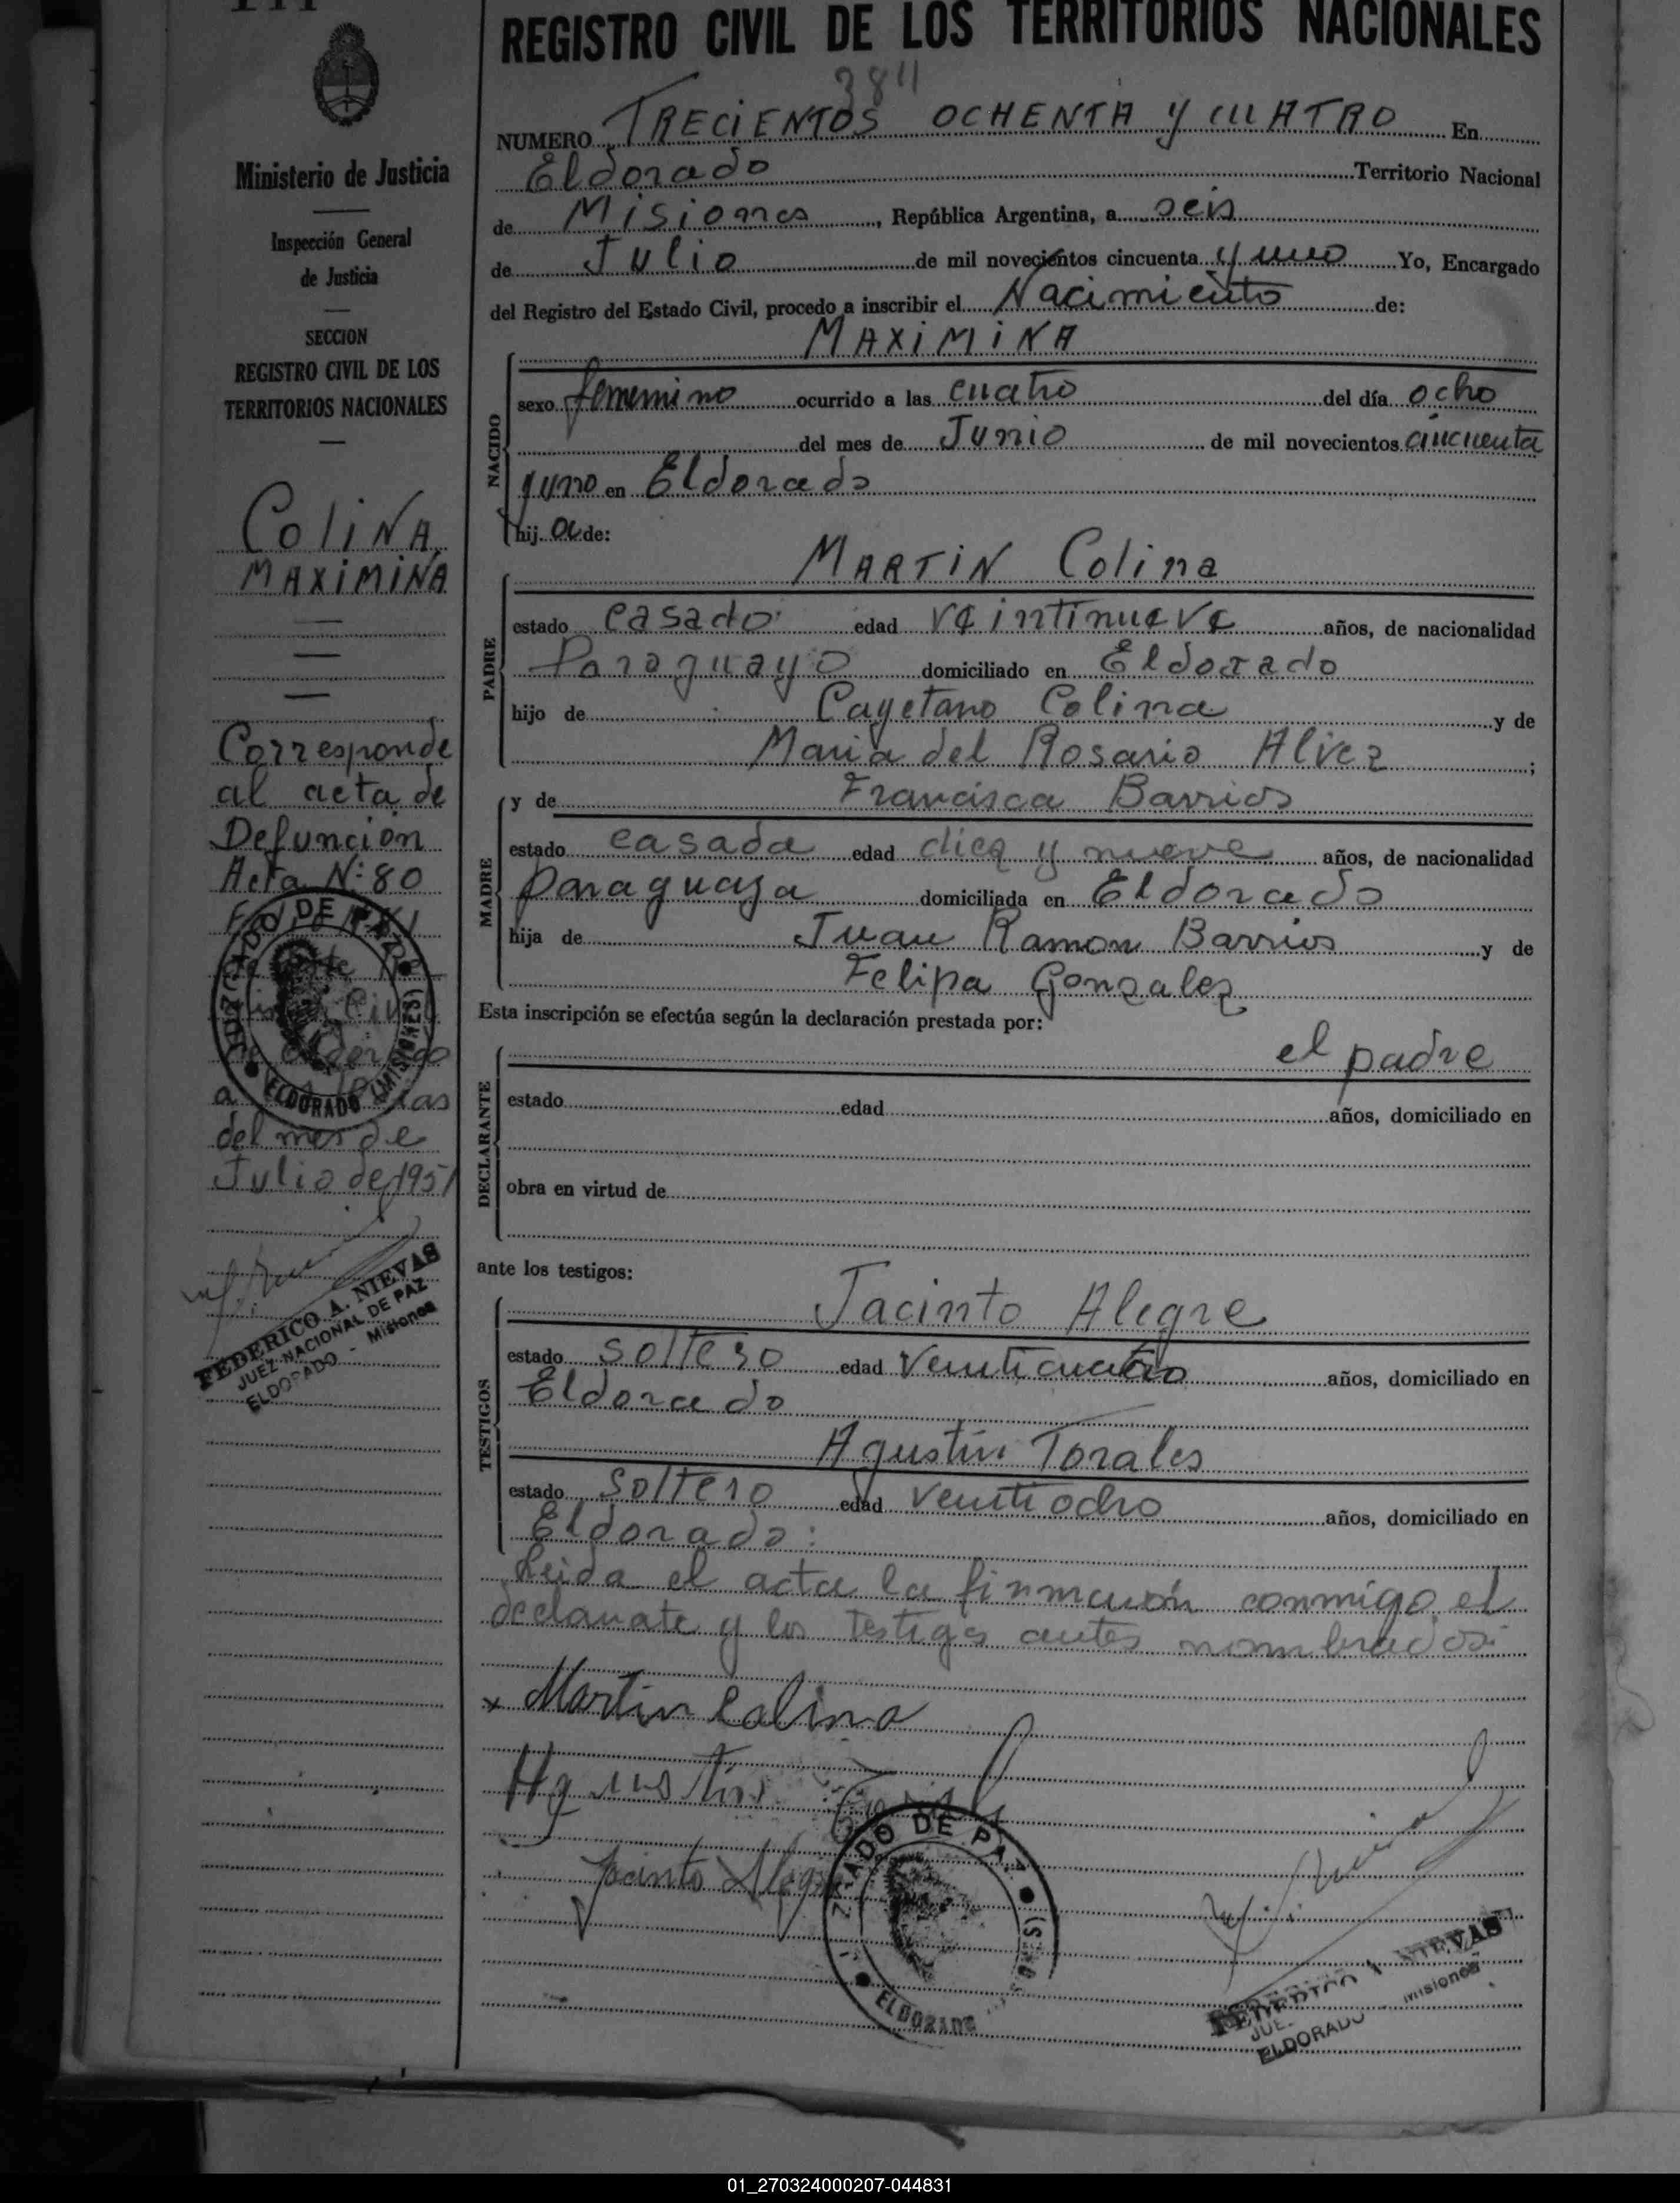 REGISTRO CIVIL DE LOS TERRITORIOS NACIONALES
384
NUMERO TRECIENTOS OCHENTA Y CUATRO En
Eldorado Territorio Nacional
de Misiones, República Argentina, a seis
de Julio de mil novecientos cincuenta y uno Yo, Encargado
del Registro del Estado Civil, procedo a inscribir el Nacimiento de:
MAXIMINA
NACIDO
sexo femenino ocurrido a las cuatro del día ocho
del mes de Junio de mil novecientos cincuenta
y uno en Eldorado
hij a de:
MARTIN Colina
PADRE
estado casado edad veintinueve años, de nacionalidad
Paraguayo domiciliado en Eldorado
hijo de Cayetano Colina y de
Maria del Rosario Alvez ;
y de Francisca Barrios
MADRE
estado casada edad diez y nueve años, de nacionalidad
paraguaya domiciliada en Eldorado
hija de Juan Ramon Barrios y de
Felipa Gonzalez
Esta inscripción se efectúa según la declaración prestada por:
el padre
DECLARANTE
estado edad años, domiciliado en
obra en virtud de
ante los testigos:
Jacinto Alegre
TESTIGOS
estado soltero edad veinticuatro años, domiciliado en
Eldorado
Agustin Torales
estado soltero edad veintiocho años, domiciliado en
Eldorado:
Leida el acta la firmaron conmigo el
declarate y los testigos antes nombrados:
x Martin Colina
Agustin
Jacinto Alegre
ZGADO DE PAZ
ELDORADO
NIEVAS
Misiones
ELDORADO
Ministerio de Justicia
Inspección General
de Justicia
SECCION
REGISTRO CIVIL DE LOS
TERRITORIOS NACIONALES
COLINA,
MAXIMINA
Corresponde
al acta de
Defunción
Acta Nº 80
JUZGADO DE PAZ
ELDORADO (MISIONES)
a dias
del mes de
Julio de 1951
FEDERICO A. NIEVAS
JUEZ NACIONAL DE PAZ
ELDORADO - Misiones
01_270324000207-044831